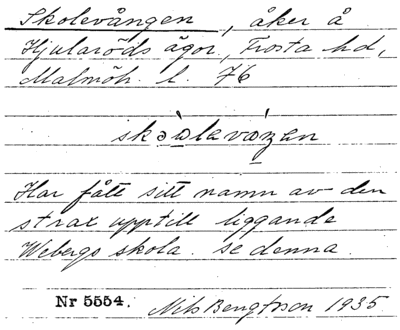 Skolevången, åker å
Hjularöds ägor, Frosta hd,
Malmöh. l. 76
Har fått sitt namn av den
strax upptill liggande
Webergs skola. se denna.
Nr 5554. Nils Bengtsson 1935